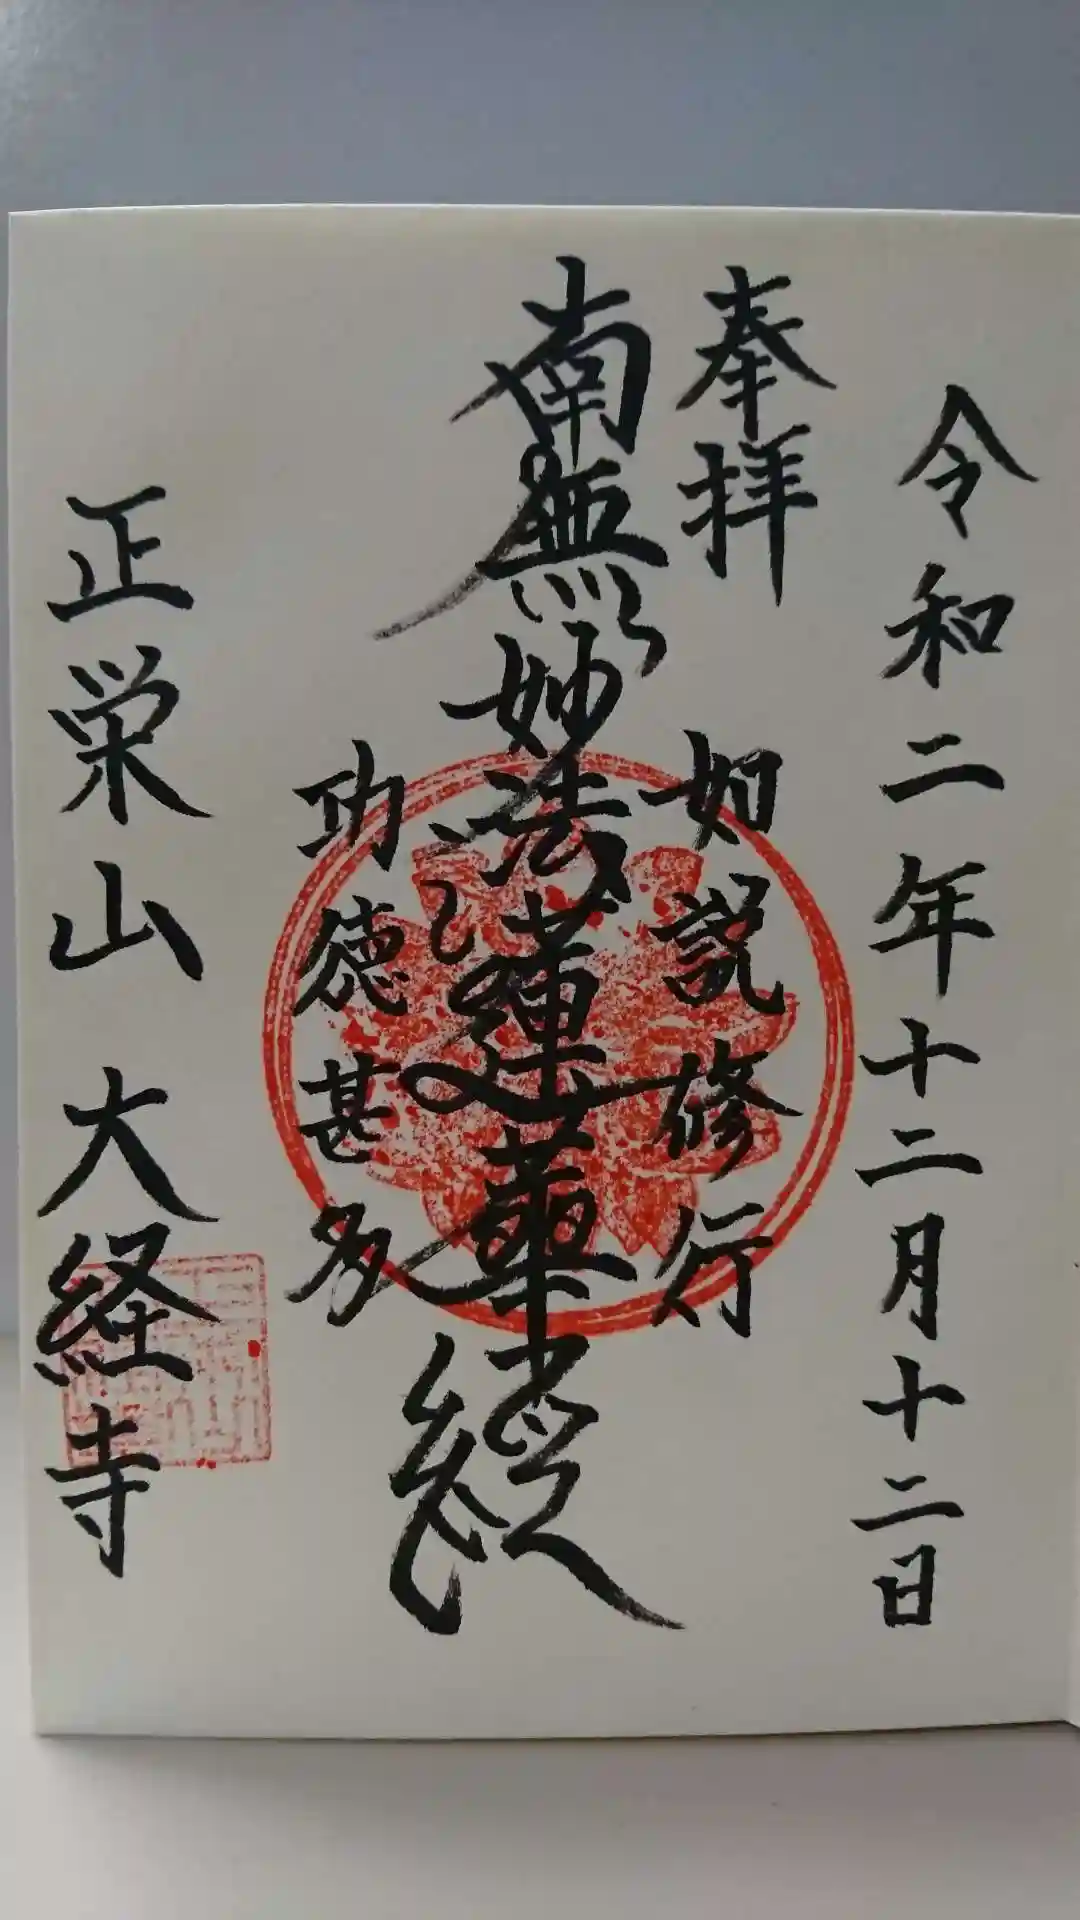 令和二年十二月十二日
奉拝
如説修行
南無妙法蓮華経
功徳甚多
正栄山 大経寺